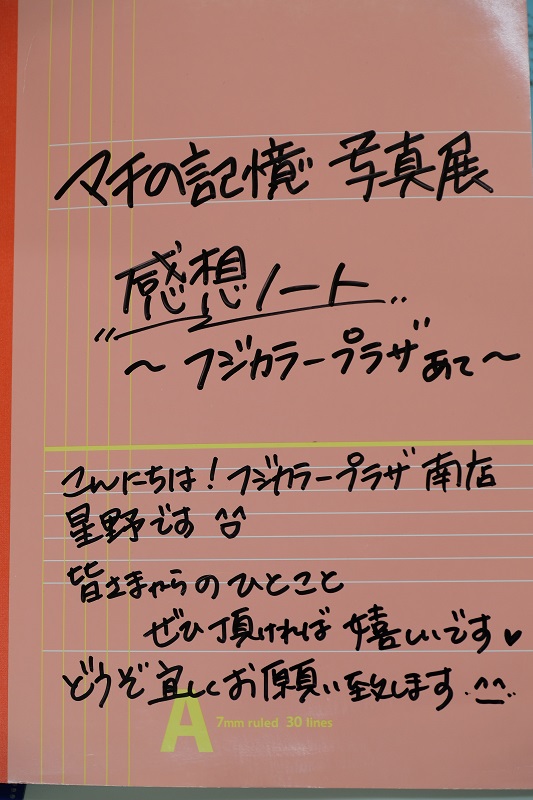 マチの記憶 写真展
感想ノート
〜 フジカラープラザあて 〜
こんにちは！フジカラープラザ南店
星野です
皆さまからのひとこと
ぜひ頂ければ 嬉しいです♥
どうぞ宜しくお願い致します.^^..
A 7mm ruled 30 lines